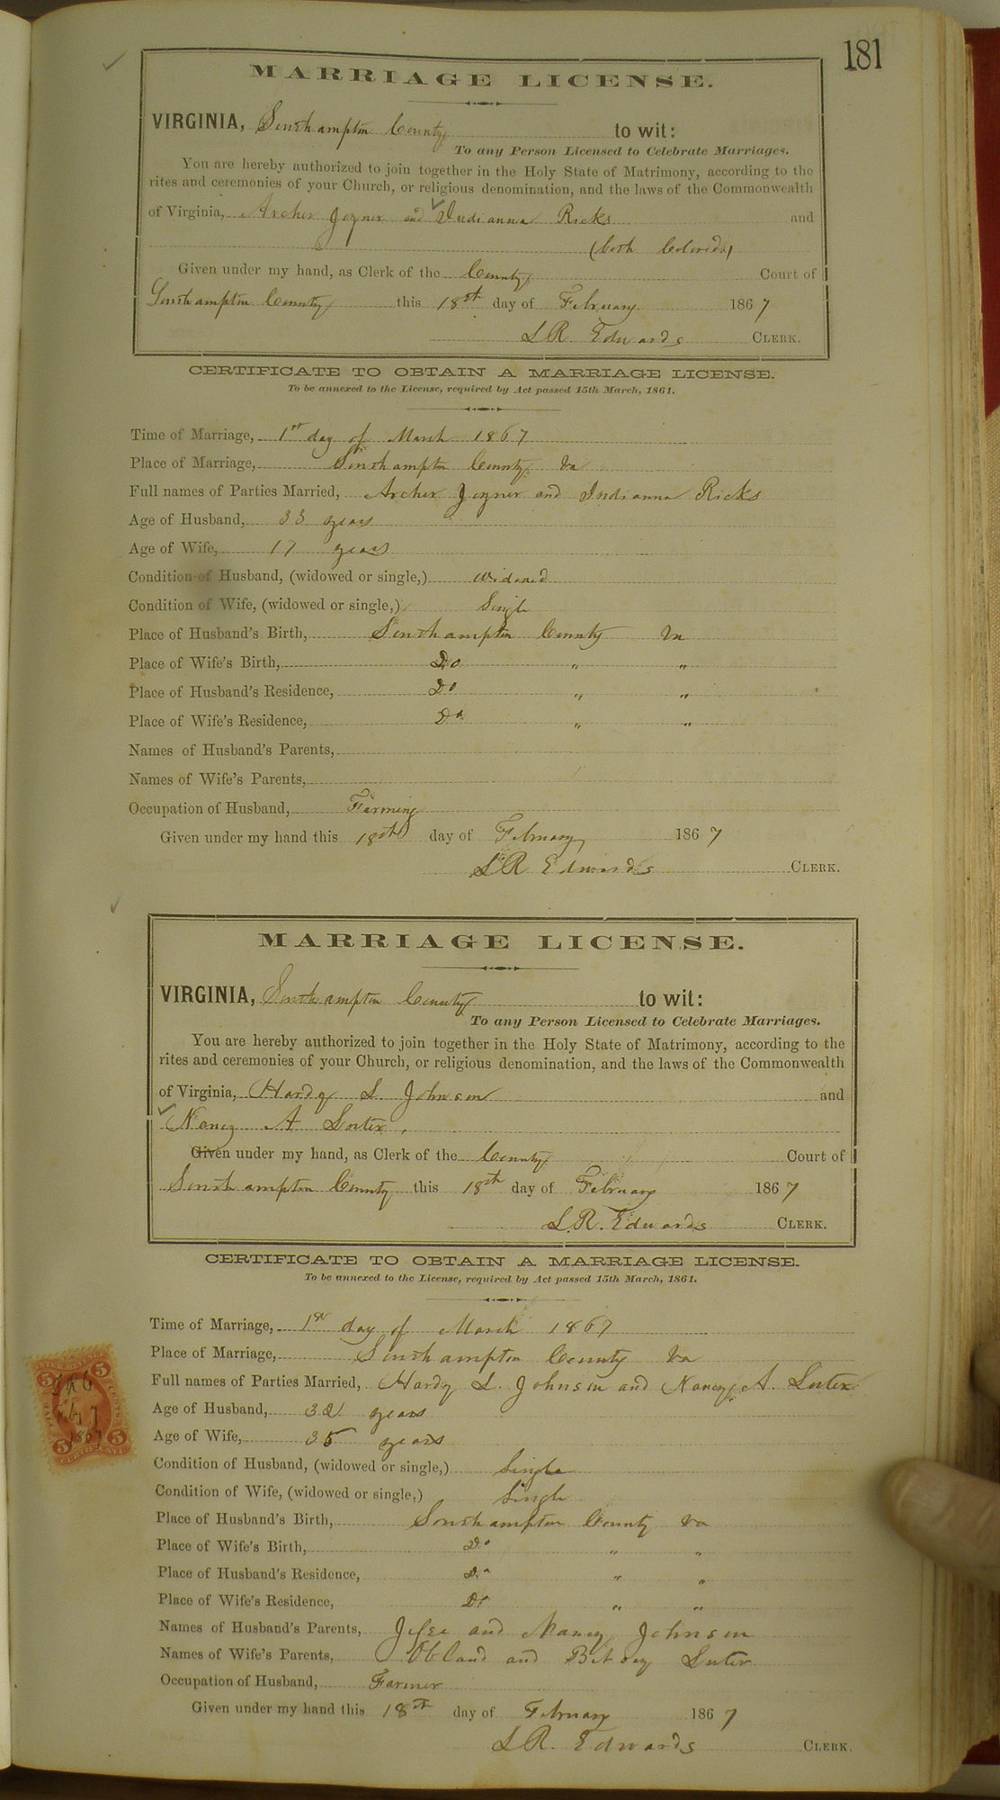 181
MARRIAGE LICENSE.
VIRGINIA, Southampton County to wit:
To any Person Licensed to Celebrate Marriages.
You are hereby authorized to join together in the Holy State of Matrimony, according to the
rites and ceremonies of your Church, or religious denomination, and the laws of the Commonwealth
of Virginia, Archer Joyner and Indianna Ricks and
(both Colored)
Given under my hand, as Clerk of the County Court of
Southampton County this 18th day of February 1867
L R Edwards CLERK.
CERTIFICATE TO OBTAIN A MARRIAGE LICENSE.
To be annexed to the License, required by Act passed 15th March, 1861.
Time of Marriage, 1st day of March 1867
Place of Marriage, Southampton County Va
Full names of Parties Married, Archer Joyner and Indianna Ricks
Age of Husband, 33 years
Age of Wife, 17 years
Condition of Husband, (widowed or single,) widowed
Condition of Wife, (widowed or single,) Single
Place of Husband's Birth, Southampton County Va
Place of Wife's Birth, Do " "
Place of Husband's Residence, Do " "
Place of Wife's Residence, Do " "
Names of Husband's Parents,
Names of Wife's Parents,
Occupation of Husband, Farming
Given under my hand this 18th day of February 1867
L R Edwards CLERK.
MARRIAGE LICENSE.
VIRGINIA, Southampton County to wit:
To any Person Licensed to Celebrate Marriages.
You are hereby authorized to join together in the Holy State of Matrimony, according to the
rites and ceremonies of your Church, or religious denomination, and the laws of the Commonwealth
of Virginia, Hardy L Johnson and
Nancy A Luter,
Given under my hand, as Clerk of the County Court of
Southampton County this 18th day of February 1867
L. R. Edwards CLERK.
CERTIFICATE TO OBTAIN A MARRIAGE LICENSE.
To be annexed to the License, required by Act passed 15th March, 1861.
Time of Marriage, 1st day of March 1867
Place of Marriage, Southampton County Va
Full names of Parties Married, Hardy L. Johnson and Nancy A. Luter
Age of Husband, 32 years
Age of Wife, 35 years
Condition of Husband, (widowed or single,) Single
Condition of Wife, (widowed or single,) Single
Place of Husband's Birth, Southampton County Va
Place of Wife's Birth, Do " "
Place of Husband's Residence, Do " "
Place of Wife's Residence, Do " "
Names of Husband's Parents, Jesse and Nancy Johnson
Names of Wife's Parents, and Betsey Luter
Occupation of Husband, Farmer
Given under my hand this 18th day of February 1867
L R. Edwards CLERK.
5 5
1867
5 5